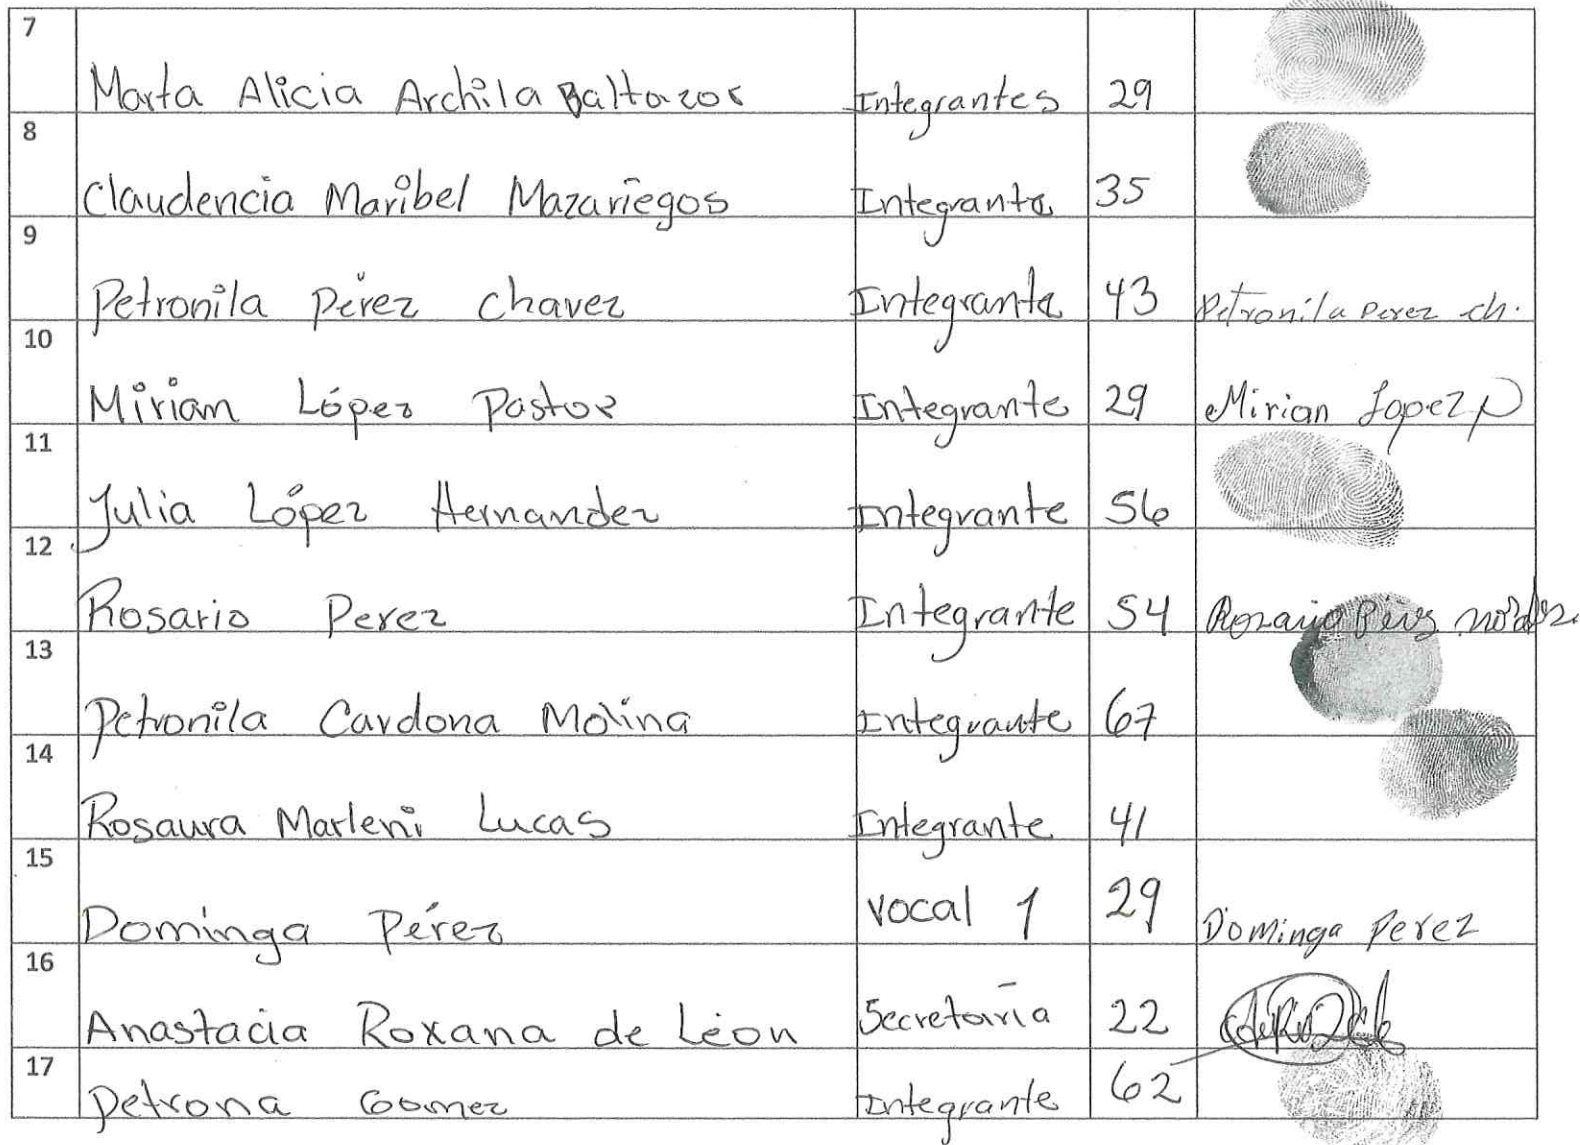 7
Marta Alicia Archila Baltazar Integrantes 29
8
Claudencia Maribel Mazariegos Integrante 35
9
Petronila Pérez Chavez Integrante 43 Petronila Perez ch.
10
Mirian López Pastor Integrante 29 Mirian Lopez P
11
Julia López Hernandez Integrante 56
12
Rosario Perez Integrante 54 Rosario
13
Petronila Cardona Molina Integrante 67
14
Rosaura Marleni Lucas Integrante 41
15
Dominga Pérez vocal 1 29 Dominga Perez
16
Anastacia Roxana de Léon Secretaria 22
17
Petrona Gomez Integrante 62